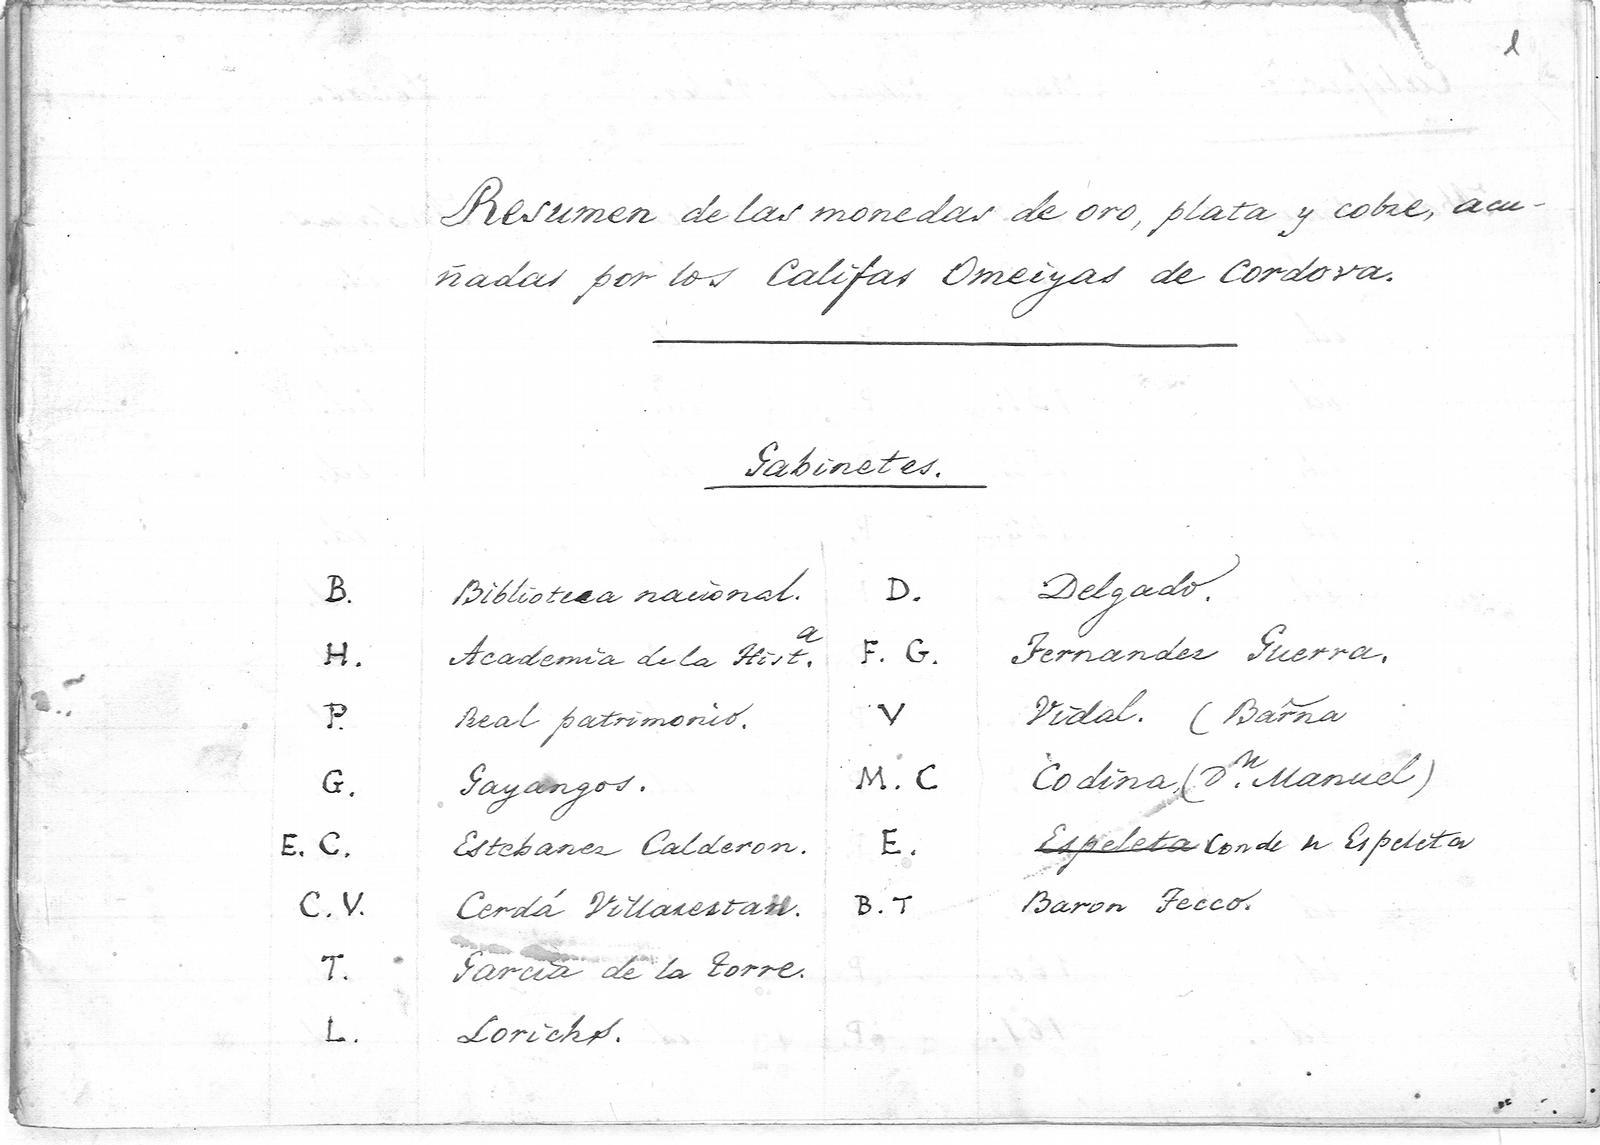 1
Resumen de las monedas de oro, plata y cobre, acu-
ñadas por los Califas Omeiyas de Cordova.
Gabinetes.
B. Biblioteca nacional. D. Delgado.
H. Academia de la Hist.ª F. G. Fernandez Guerra.
P. Real patrimonio. V Vidal. (Barña
G. Gayangos. M. C Codina, (D.ⁿ Manuel)
E. C. Estebanez Calderon. E. Espeleta Conde de Espeleta
C. V. Cerdá Villarestan. B. T Baron Tecco.
T. Garcia de la Torre.
L. Lorichs.